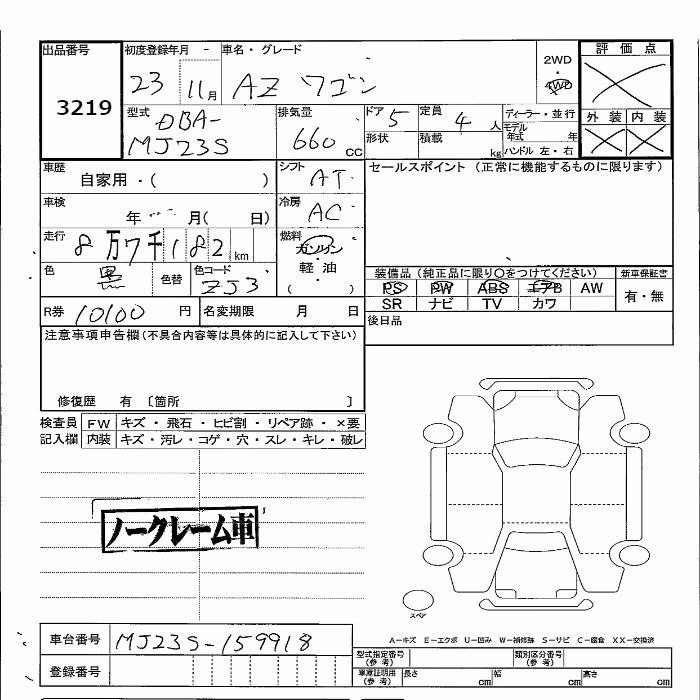 出品番号
3219
初度登録年月 -
23 11月
車名・グレード
AZ ワゴン
2WD
・
4WD
評価点
外装 内装
型式
DBA-
MJ23S
排気量
660 CC
ドア 5
定員 4 人
形状
積載 kg
ディーラー・並行
モデル
年式 年
ハンドル 左・右
車歴
自家用・( )
シフト AT
セールスポイント (正常に機能するものに限ります)
車検
年 月( 日)
冷房 AC
走行
8万7千182 km
燃料
ガソリン
・
軽油
( ・ )
色 黒
色替
色コード
ZJ3
装備品 (純正品に限り○をつけてください)
PS PW ABS エアB AW
SR ナビ TV カワ
新車保証書
有・無
R券 10100 円
名変期限 月 日
後日品
注意事項申告欄(不具合内容等は具体的に記入して下さい)
修復歴 有 〔箇所 〕
検査員
記入欄
FW キズ・飛石・ヒビ割・リペア跡・×要
内装 キズ・汚レ・コゲ・穴・スレ・キレ・破レ
ノークレーム車
スペア
A-キズ E-エクボ U-凹み W-補修跡 S-サビ C-腐食 XX-交換済
車台番号 MJ23S-159918
登録番号
型式指定番号
(参考)
類別区分番号
(参考)
車庫証明用
(参考)
長さ cm
幅 cm
高さ cm